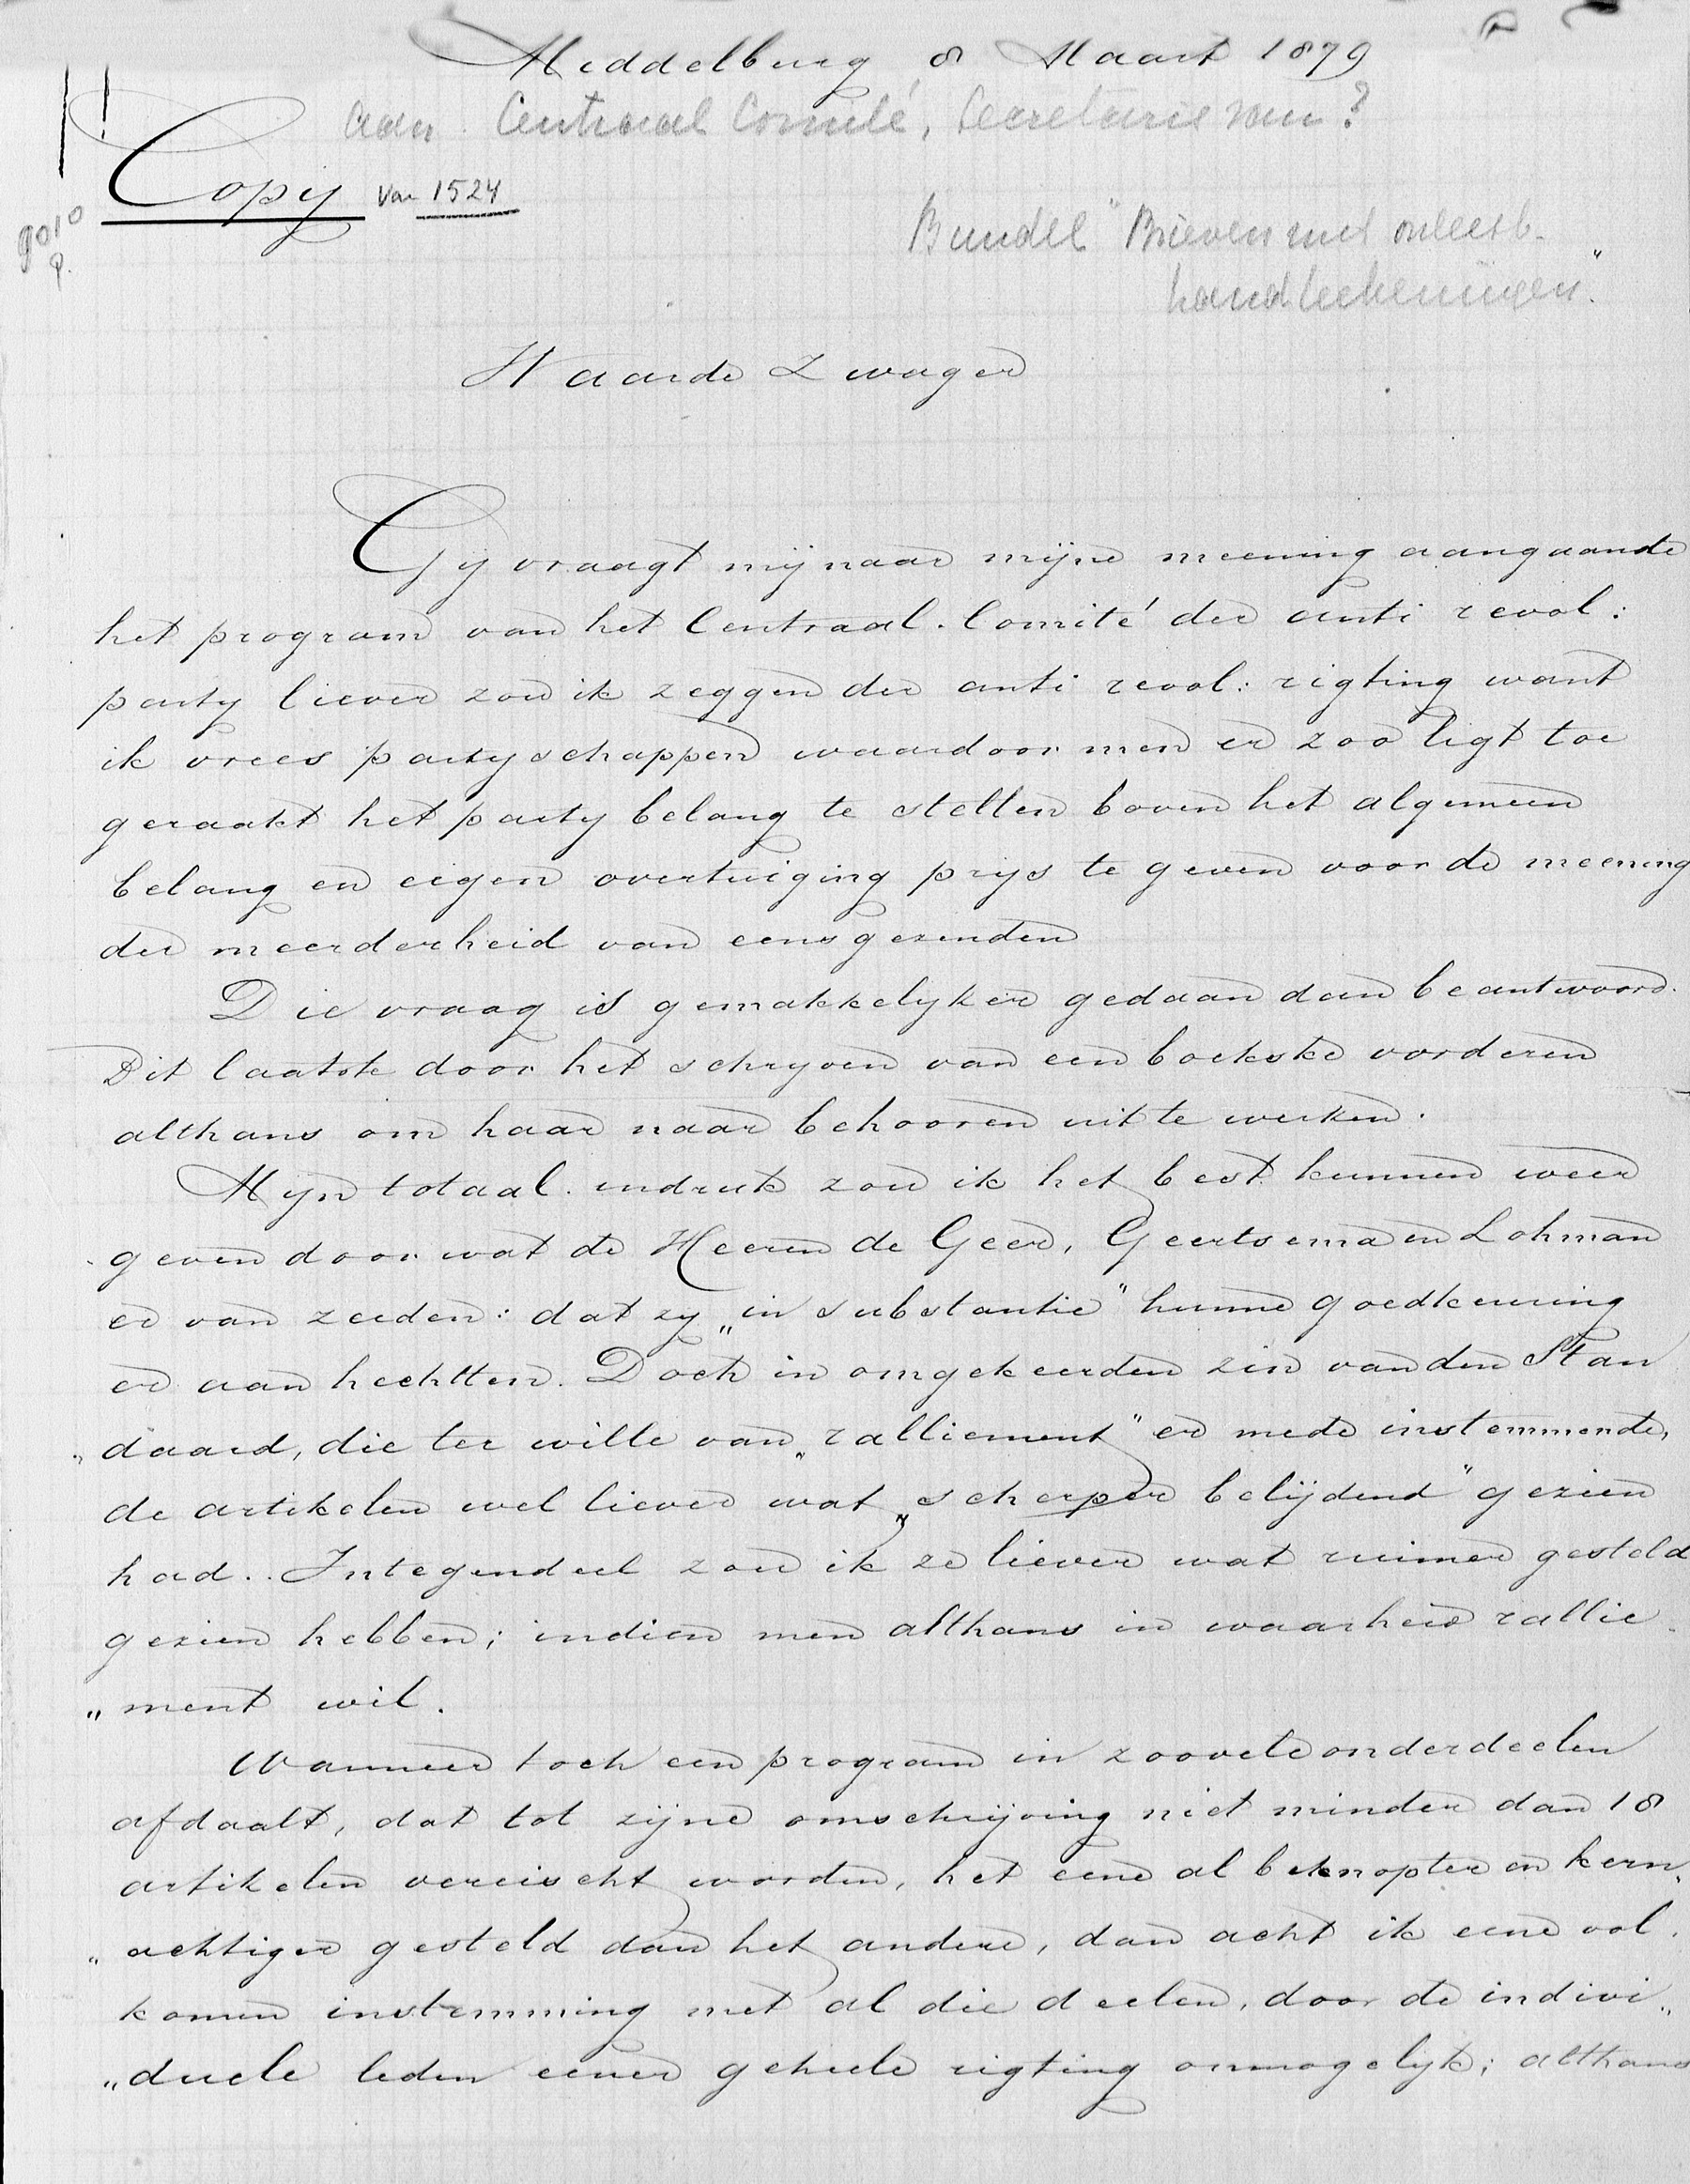 Middelburg 8 Maart 1879
aan Centraal Comité, Secretaris van?
Copij van 1524
Bundel "Brieven met onleesb.
handteekeningen".
Waarde Zwager
Gij vraagt mij naar mijne meening aangaande
het program van het Centraal. Comité der anti revol:
party liever zou ik zeggen der anti revol: rigting want
ik vrees partyschappen waardoor men er zoo ligt toe
geraakt het party belang te stellen boven het algemeen
belang en eigen overtuiging prys te geven voor de meening
der meerderheid van eensgezinden
Die vraag is gemakkelyker gedaan dan beantwoord.
Dit laatste door het schryven van een boekske vorderen
althans om haar naar behooren uit te werken.
Myn totaal. indruk zou ik het best kunnen weer
geven door wat de Heeren de Geer, Geertsema en Lohman
er van zeiden: dat zy „in substantie" hunne goedkeuring
er aan hechtten. Doch in omgekeerden zin van den Stan
„daard, die ter wille van „ralliement" er mede instemmende,
de artikelen wel liever wat „scherper belijdend" gezien
had.. Integendeel zou ik ze liever wat ruimer gesteld
gezien hebben; indien men althans in waarheid rallie
„ment wil.
Wanneer toch een program in zoovele onderdeelen
afdaalt, dat tot zijne omschrijving niet minder dan 18
artikelen vereischt worden, het eene al beknopter en kern„
„achtiger gesteld dan het andere, dan acht ik eene vol.
komen instemming met al die deelen, door de indivi„
„duele leden eener geheele rigting onmogelyk; althans